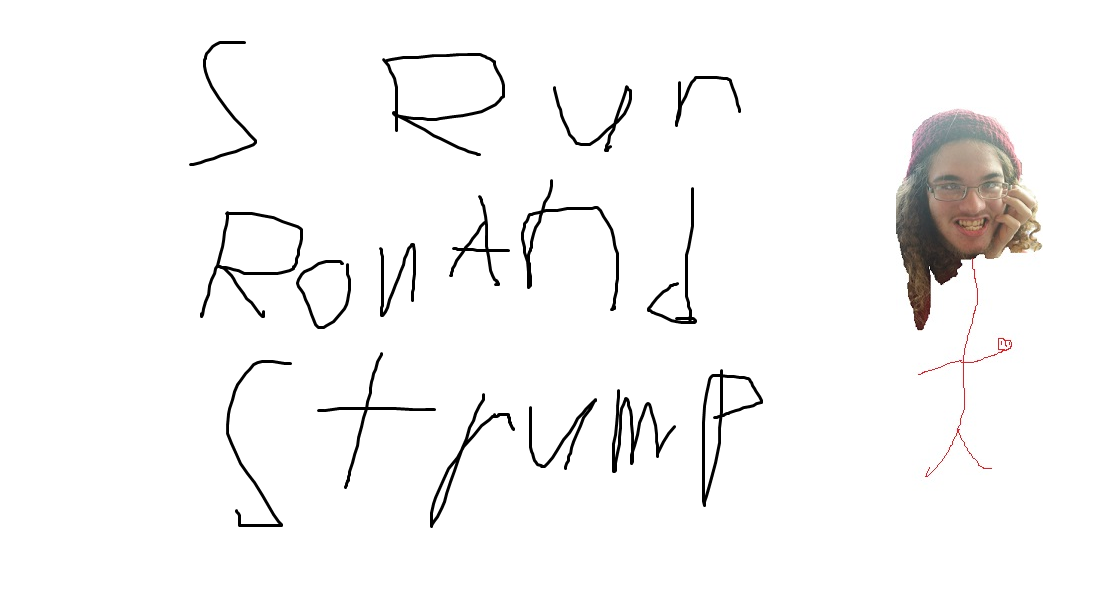 S Run
RonAnd
Strump